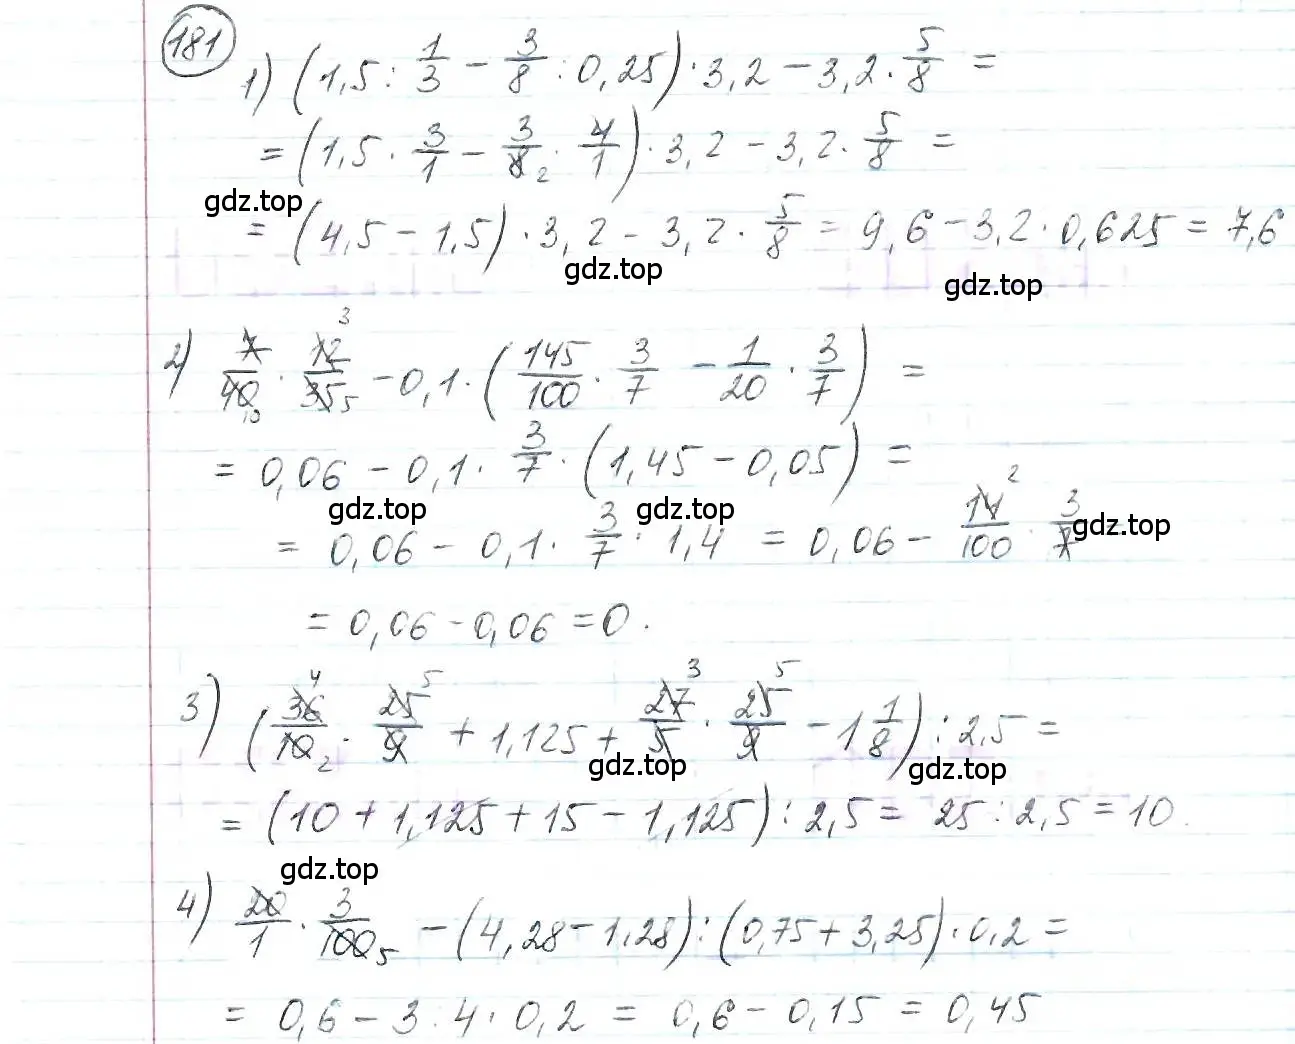 181
1) (1,5 : 1/3 − 3/8 : 0,25) · 3,2 − 3,2 · 5/8 =
= (1,5 · 3/1 − 3/8 2 · 4/1) · 3,2 − 3,2 · 5/8 =
gdz.top
= (4,5 − 1,5) · 3,2 − 3,2 · 5/8 = 9,6 − 3,2 · 0,625 = 7,6
gdz.top gdz.top
2) 7/40 10 · 12 3/35 5 − 0,1 · (145/100 · 3/7 − 1/20 · 3/7) =
= 0,06 − 0,1 · 3/7 · (1,45 − 0,05) =
gdz.top gdz.top gdz.top
= 0,06 − 0,1 · 3/7 · 1,4 = 0,06 − 14 2/100 · 3/7
= 0,06 − 0,06 = 0.
3) (36 4/10 2 · 25 5/9 + 1,125 + 27 3/5 · 25 5/9 − 1 1/8) : 2,5 =
gdz.top gdz.top
= (10 + 1,125 + 15 − 1,125) : 2,5 = 25 : 2,5 = 10.
gdz.top
4) 20/1 · 3/100 5 − (4,28 − 1,28) : (0,75 + 3,25) · 0,2 =
= 0,6 − 3 : 4 · 0,2 = 0,6 − 0,15 = 0,45